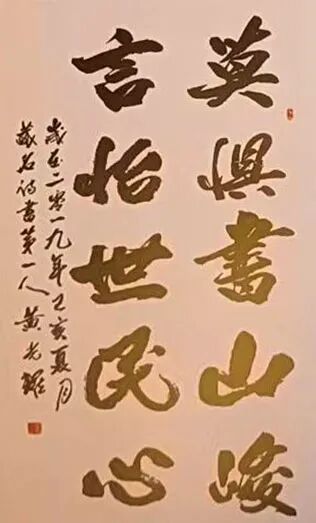 莫惧書山峻
言怡世民心
歲在二零一九年己亥夏月
藏名诗書第一人黄光耀